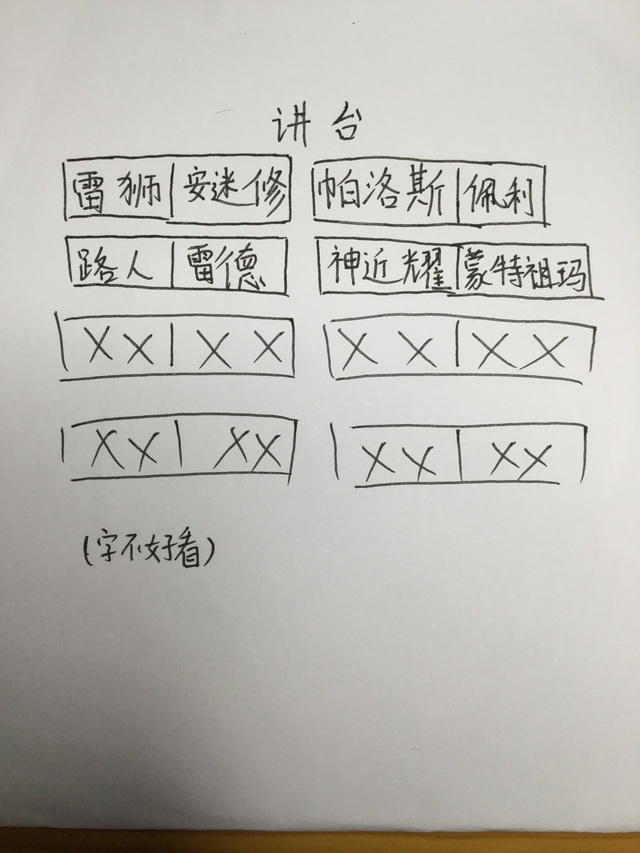 讲台
雷狮 安迷修 帕洛斯 佩利
路人 雷德 神近耀 蒙特祖玛
XX XX XX XX
XX XX XX XX
(字不好看)